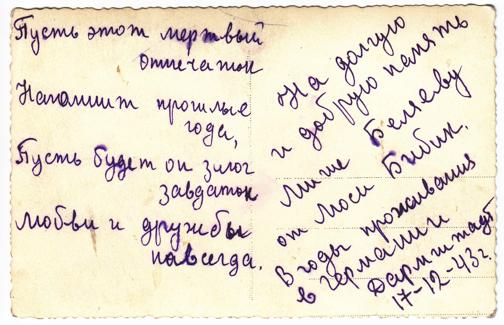 Пусть этот мертвый
отпечаток
Напомнит прошлые
года,
Пусть будет он злог
завдаток
любви и дружбы
навсегда.
На долгую
и добрую память
Мише Беляеву
от Люси Бибик.
В годы проживания
в германии
Дармштадт
17-12-43г.